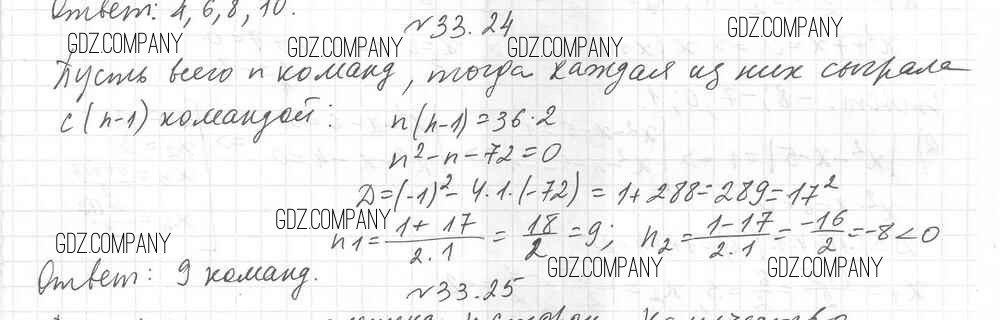 Ответ: 4, 6, 8, 10.
№33.24
GDZ.COMPANY GDZ.COMPANY GDZ.COMPANY GDZ.COMPANY
Пусть всего n команд, тогда каждая из них сыграла
с (n-1) командой: n(n-1)=36·2
n²-n-72=0
D=(-1)²-4·1·(-72)=1+288=289=17²
GDZ.COMPANY
n1=1+17/2·1=18/2=9; n2=1-17/2·1=-16/2=-8<0
GDZ.COMPANY GDZ.COMPANY GDZ.COMPANY
Ответ: 9 команд.
№33.25